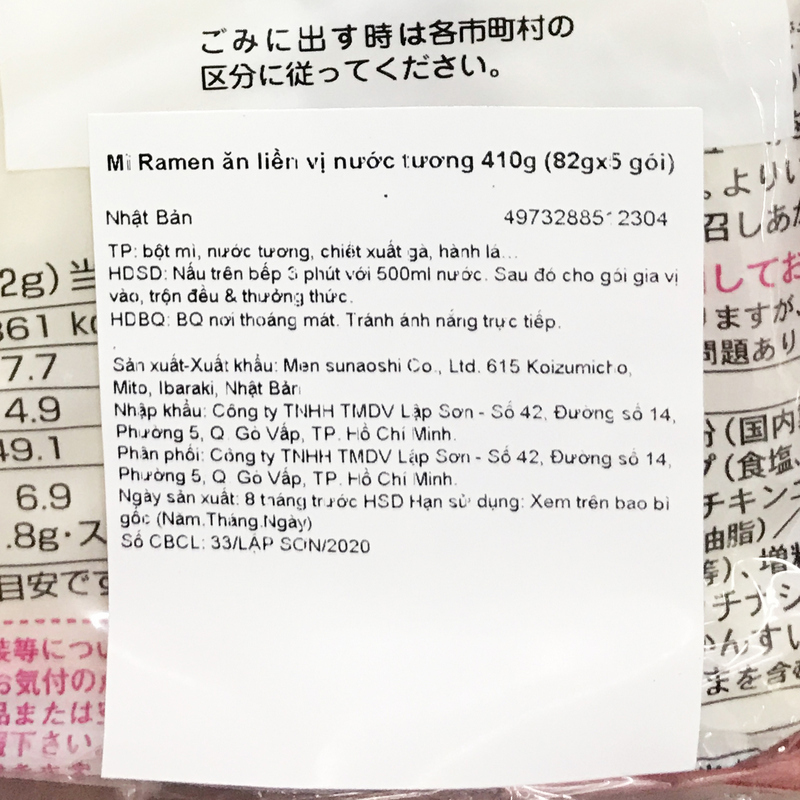 ごみに出す時は各市町村の
区分に従ってください。
Mì Ramen ăn liền vị nước tương 410g (82gx5 gói)
Nhật Bản 4973288512304
TP: bột mì, nước tương, chiết xuất gà, hành lá...
HDSD: Nấu trên bếp 3 phút với 500ml nước. Sau đó cho gói gia vị
vào, trộn đều & thưởng thức.
HDBQ: BQ nơi thoáng mát. Tránh ánh nắng trực tiếp.
Sản xuất-Xuất khẩu: Men sunaoshi Co., Ltd. 615 Koizumicho,
Mito, Ibaraki, Nhật Bản
Nhập khẩu: Công ty TNHH TMDV Lập Sơn - Số 42, Đường số 14,
Phường 5, Q. Gò Vấp, TP. Hồ Chí Minh.
Phân phối: Công ty TNHH TMDV Lập Sơn - Số 42, Đường số 14,
Phường 5, Q. Gò Vấp, TP. Hồ Chí Minh.
Ngày sản xuất: 8 tháng trước HSD Hạn sử dụng: Xem trên bao bì
gốc (Năm.Tháng.Ngày)
Số CBCL: 33/LẬP SƠN/2020
2g) 当
361 kc
7.7
4.9
49.1
6.9
.8g・ス
目安です
装等につい
お気付の
品または
下さい
。よりい
召しあが
してお
ますが、
問題あり
分(国内
(食塩、
チキン
油脂)/
等)、増粘
チナシ
かんすい
まを含む